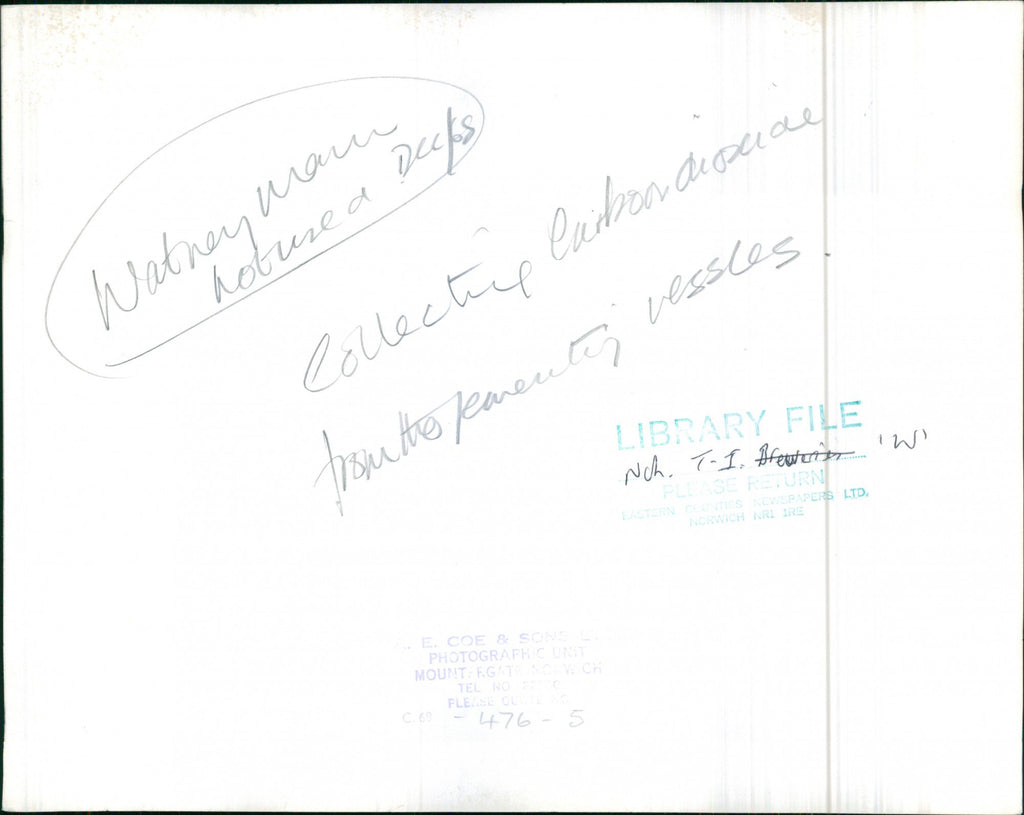 Watney Mann
not used. Decks
Collecting Carbon dioxide
from the fermenting vessles.
LIBRARY FILE
Nch. T-I. Breweries 'W'
PLEASE RETURN
EASTERN COUNTIES NEWSPAPERS LTD,
NORWICH NR1 1RE
E. COE & SONS
PHOTOGRAPHIC UNIT
MOUNTERGATE NORWICH
TEL NO
PLEASE QUOTE NO
C.69 - 476 - 5